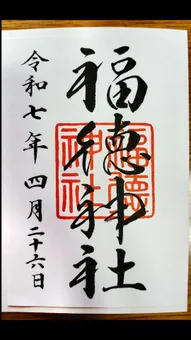 福徳神社
福徳
神社
令和七年四月二十六日